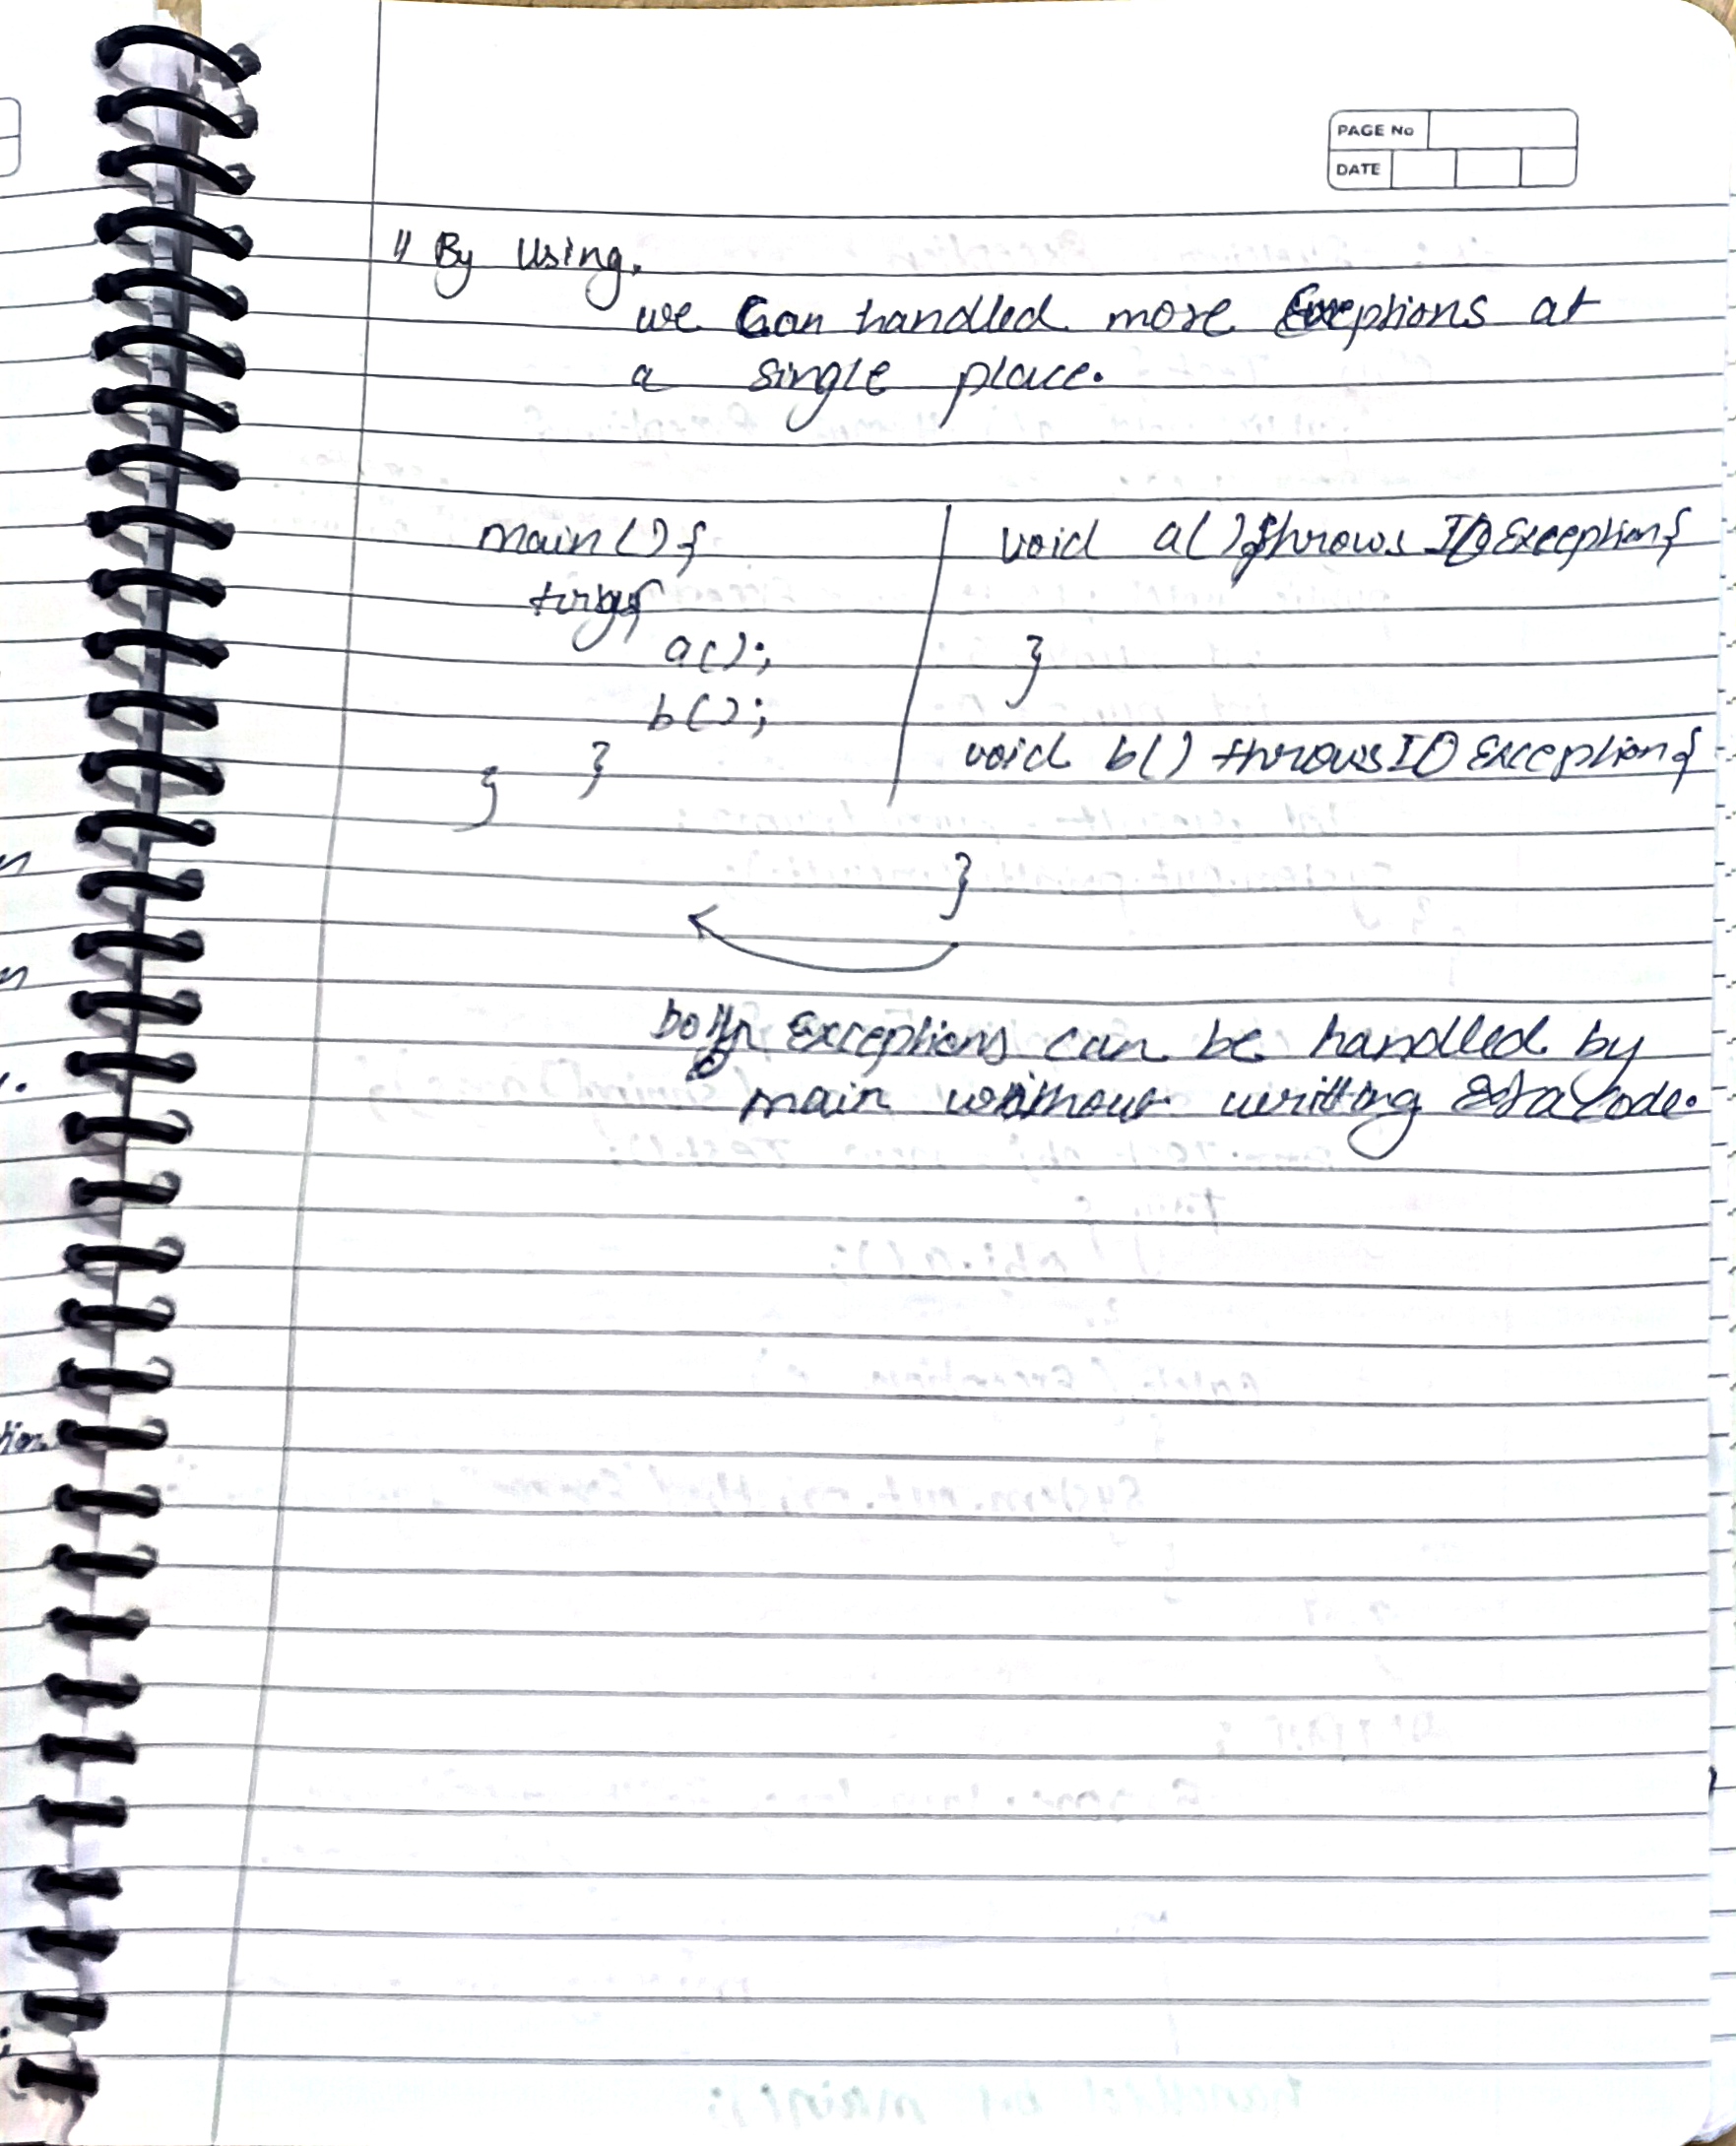 PAGE No
DATE
" By Using,
we Can handled more Exceptions at
a single place.
main(){
try{
a();
b();
}
}
void a() throws IO Exception{
}
void b() throws IO Exception{
}
both Exceptions can be handled by
main without writting Extra Code.